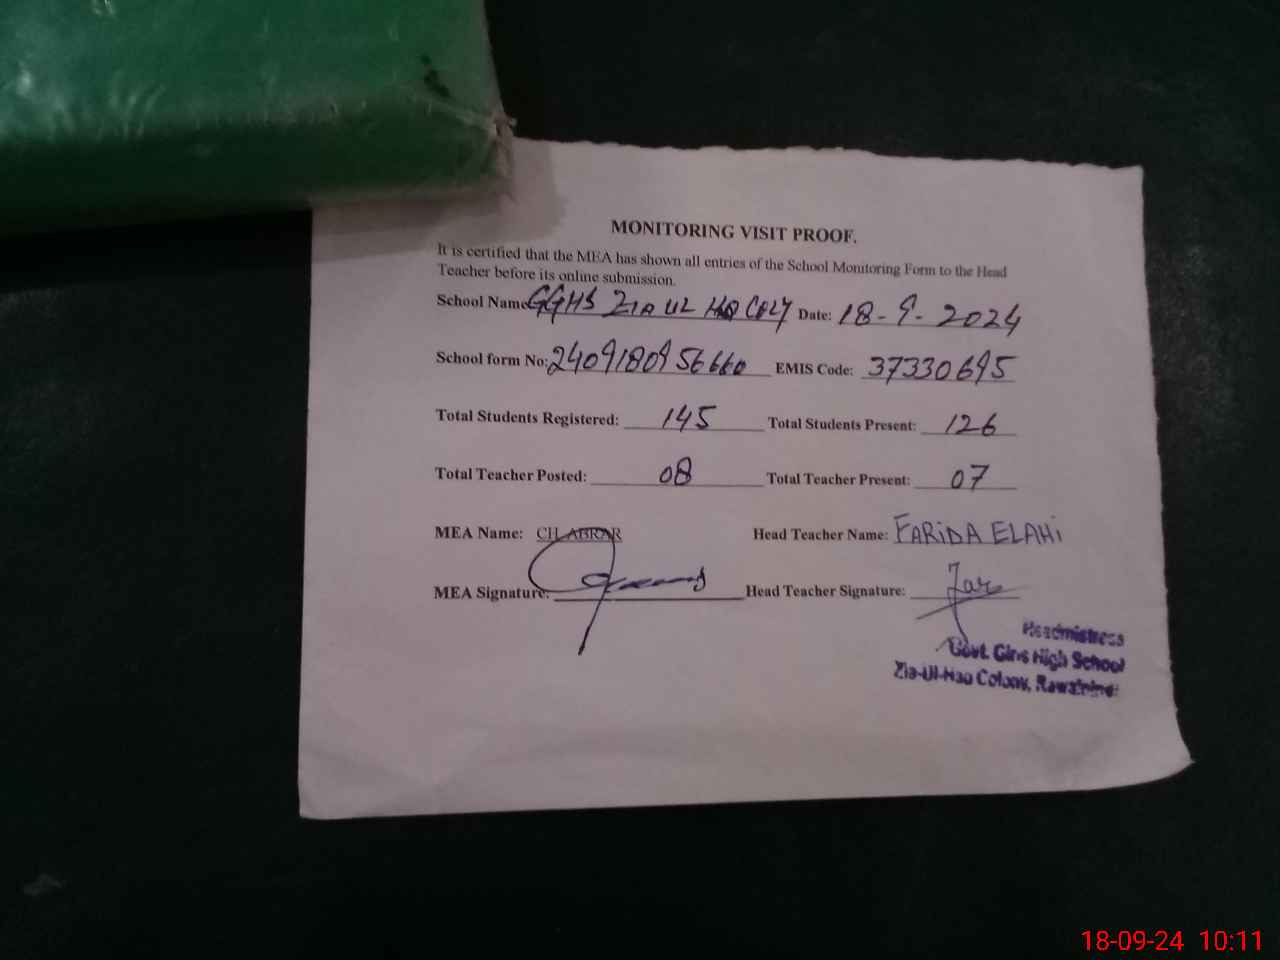 MONITORING VISIT PROOF.
It is certified that the MEA has shown all entries of the School Monitoring Form to the Head
Teacher before its online submission.
School Name GGHS ZIA UL HAQ COLY Date: 18-9-2024
School form No: 2409180956660 EMIS Code: 37330695
Total Students Registered: 145 Total Students Present: 126
Total Teacher Posted: 08 Total Teacher Present: 07
MEA Name: CH ABRAR Head Teacher Name: FARIDA ELAHI
MEA Signature: Head Teacher Signature: Far
Headmistress
Govt. Girls High School
Zia-Ul-Haq Colony, Rawalpindi
18-09-24 10:11